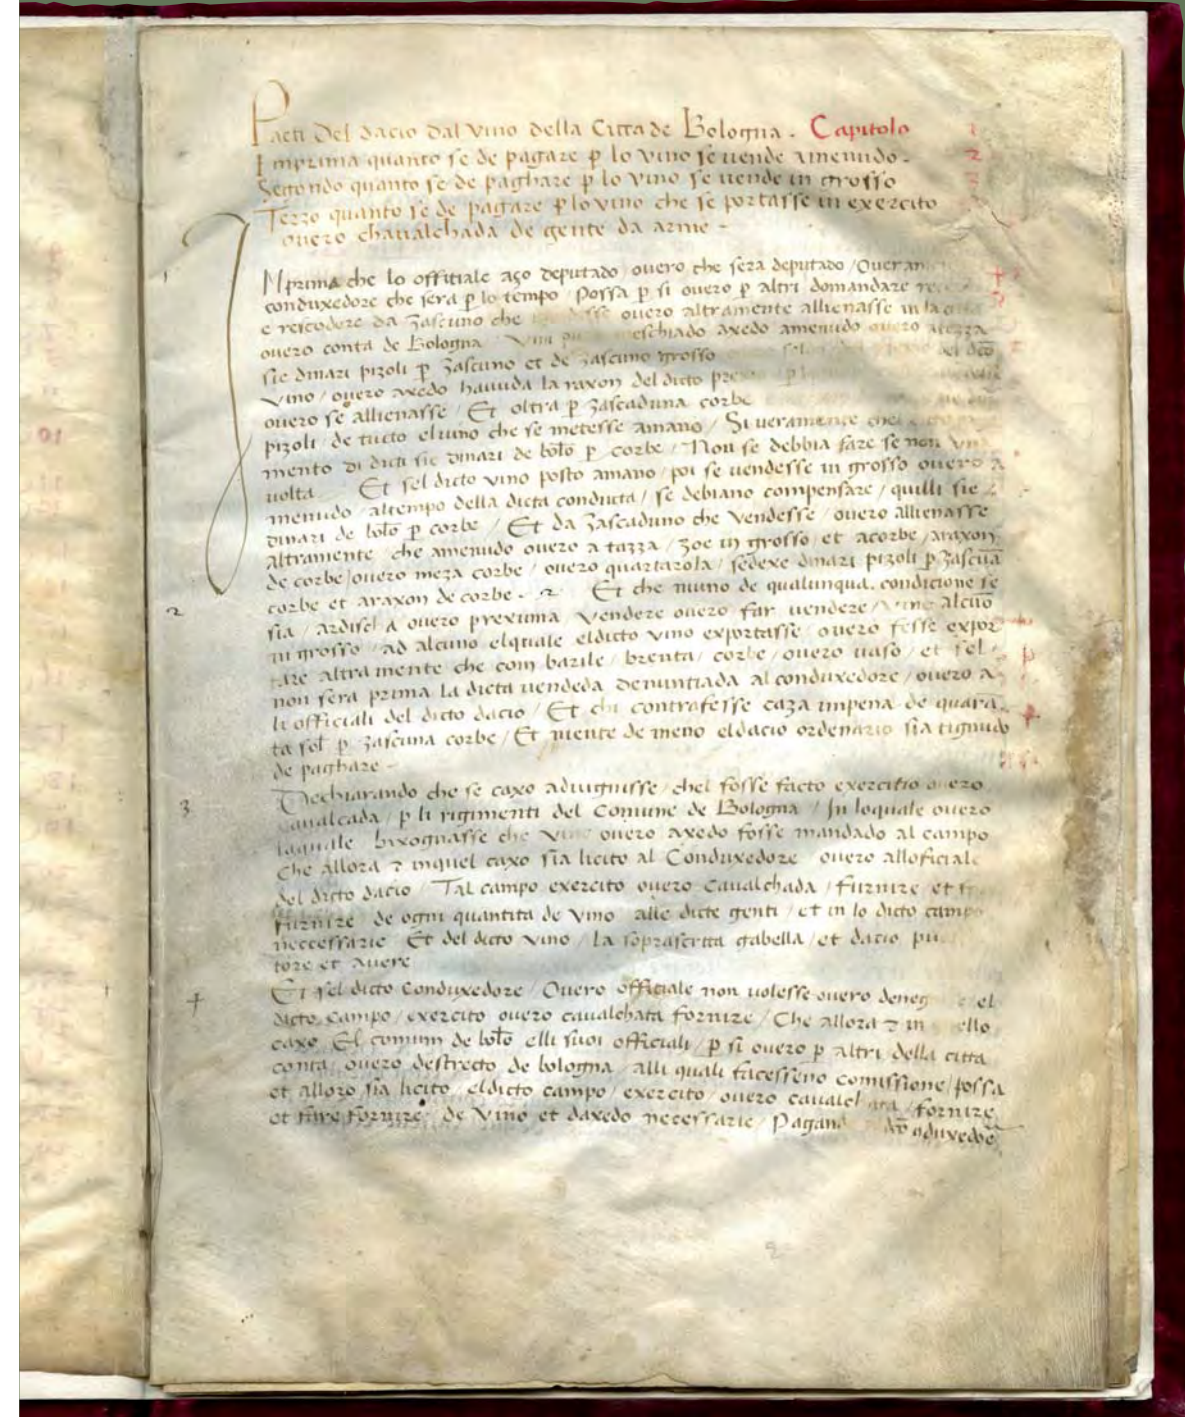 Pacti Del dacio dal vino della Citta de Bologna . Capitolo 1
Imprima quanto se de pagare p̱ lo vino se uende amenudo . 2
Segondo quanto se de paghare p̱ lo vino se uende in grosso
Terzo quanto se de pagare p̱ lo vino che se portasse in exercito
ouero chaualchada de gente da arme -
1 IMprima che lo offitiale aço deputado / ouero che sera deputado / Oueram
conduxedore che sera p̱ lo tempo / Possa p̱ si ouero p̱ altri domandare
e rescodere da Zascuno che ouero altramente allienasse in la
ouero conta de Bologna / axedo amenudo ouero atazza
sie dinari pizoli p̱ Zascuno et de Zascuno grosso del dcō
vino / ouero axedo hauuda la raxon del dicto
ouero se allienasse / Et oltra p̱ Zascaduna corbe
pizoli / de tucto el uino che se metesse amano / Si ueramente chel
mento di dicti sie dinari de bolō p̱ corbe / Non se debbia fare se non una
uolta . Et sel dicto vino posto amano / poi se uendesse in grosso ouero a
menudo / altempo della dicta conducta / se debiano compensare / quilli sie
dinari de bolō p̱ corbe / Et da Zascaduno che vendesse / ouero allienasse
altramente che amenudo ouero a tazza / zoe in grosso / et acorbe / araxon
de corbe / ouero meza corbe / ouero quartarola / sedexe dinari pizoli p̱ Zascūa
corbe et araxon de corbe . 2 Et che niuno de qualunqua condicione se
2 sia / ardisca ouero prexuma vendere ouero far uendere / alcūo
in grosso / ad alcuno elquale eldicto vino exportasse ouero fesse expor
tare altramente che com barile / brenta / corbe / ouero uaso / et sel
non sera prima la dicta uendeda denuntiada al conduxedore / ouero a
li officiali del dicto dacio / Et chi contrafesse caza inpena de quarā
ta sol p̱ Zascuna corbe / Et niente de meno eldacio ordenario sia tignudo
de paghare -
3 Dechiarando che se caxo aduignisse / chel fosse facto exercitio ouero
caualcada / p̱ li rigimenti del Comune de Bologna / In loquale ouero
laquale bixognasse che ouero axedo fosse mandado al campo
Che allora ⁊ inquel caxo sia licito al Conduxedore ouero alloficiale
del dicto dacio / Tal campo exercito ouero Caualchada / furnire et
furnire de ogni quantita de vino alle dicte genti / et in lo dicto campo
neccessarie Et del dicto vino / la soprascritta gabella / et dacio
tore et auere
4 Et sel dicto Conduxedore / Ouero officiale non uolesse ouero deneg el
dicto campo / exercito ouero caualchata fornire / Che allora ⁊ in ello
caxo El comun de bolō elli suoi officiali / p̱ si ouero p̱ altri della citta
conta ouero destrecto de bologna / alli quali facesseno comissione / possa
et alloro sia licito / eldicto campo / exercito / ouero caualchata / fornire
et fare fornire / de vino et daxedo necessarie / Pagand